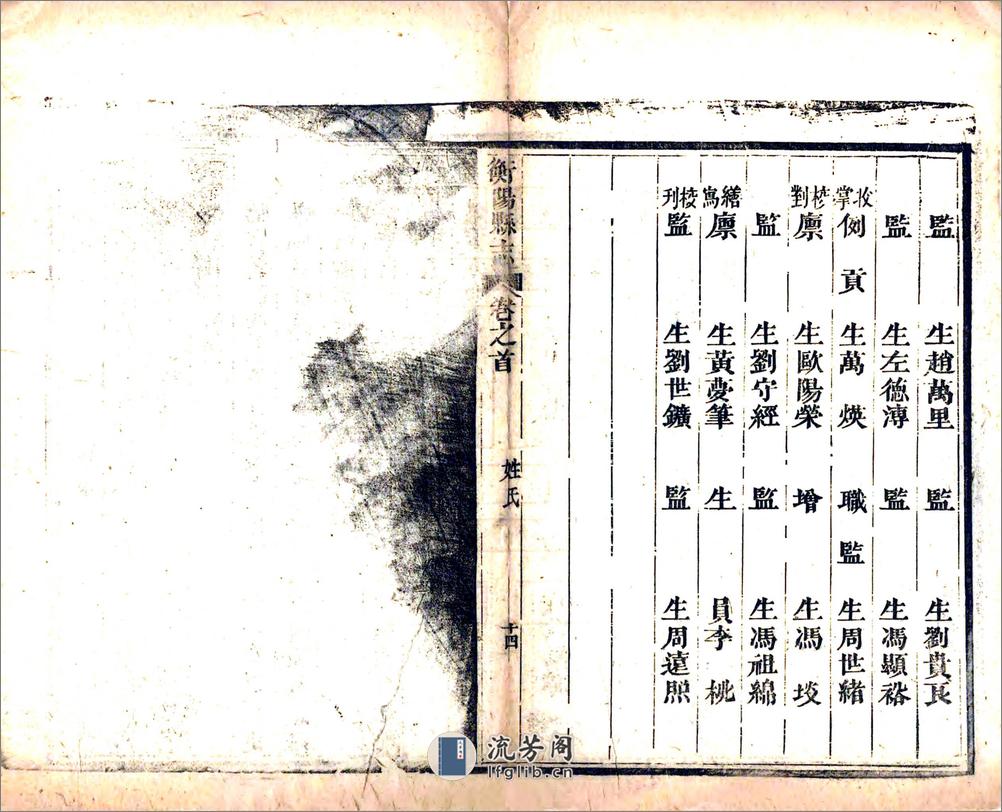 監　生趙萬里　監　生劉貴良
監　生左德溥　監　生馮顯裕
收掌例貢生萬　煐　職監生周世緒
校對廪　生歐陽榮　增　生馮　埮
監　生劉守經　監　生馮祖綿
繕寫廪　生黃夢筆　生　員李　桃
校刊監　生劉世鑛　監　生周遠熙
衡陽縣志　卷之首　姓氏　十四
流芳阁
lfglib.cn